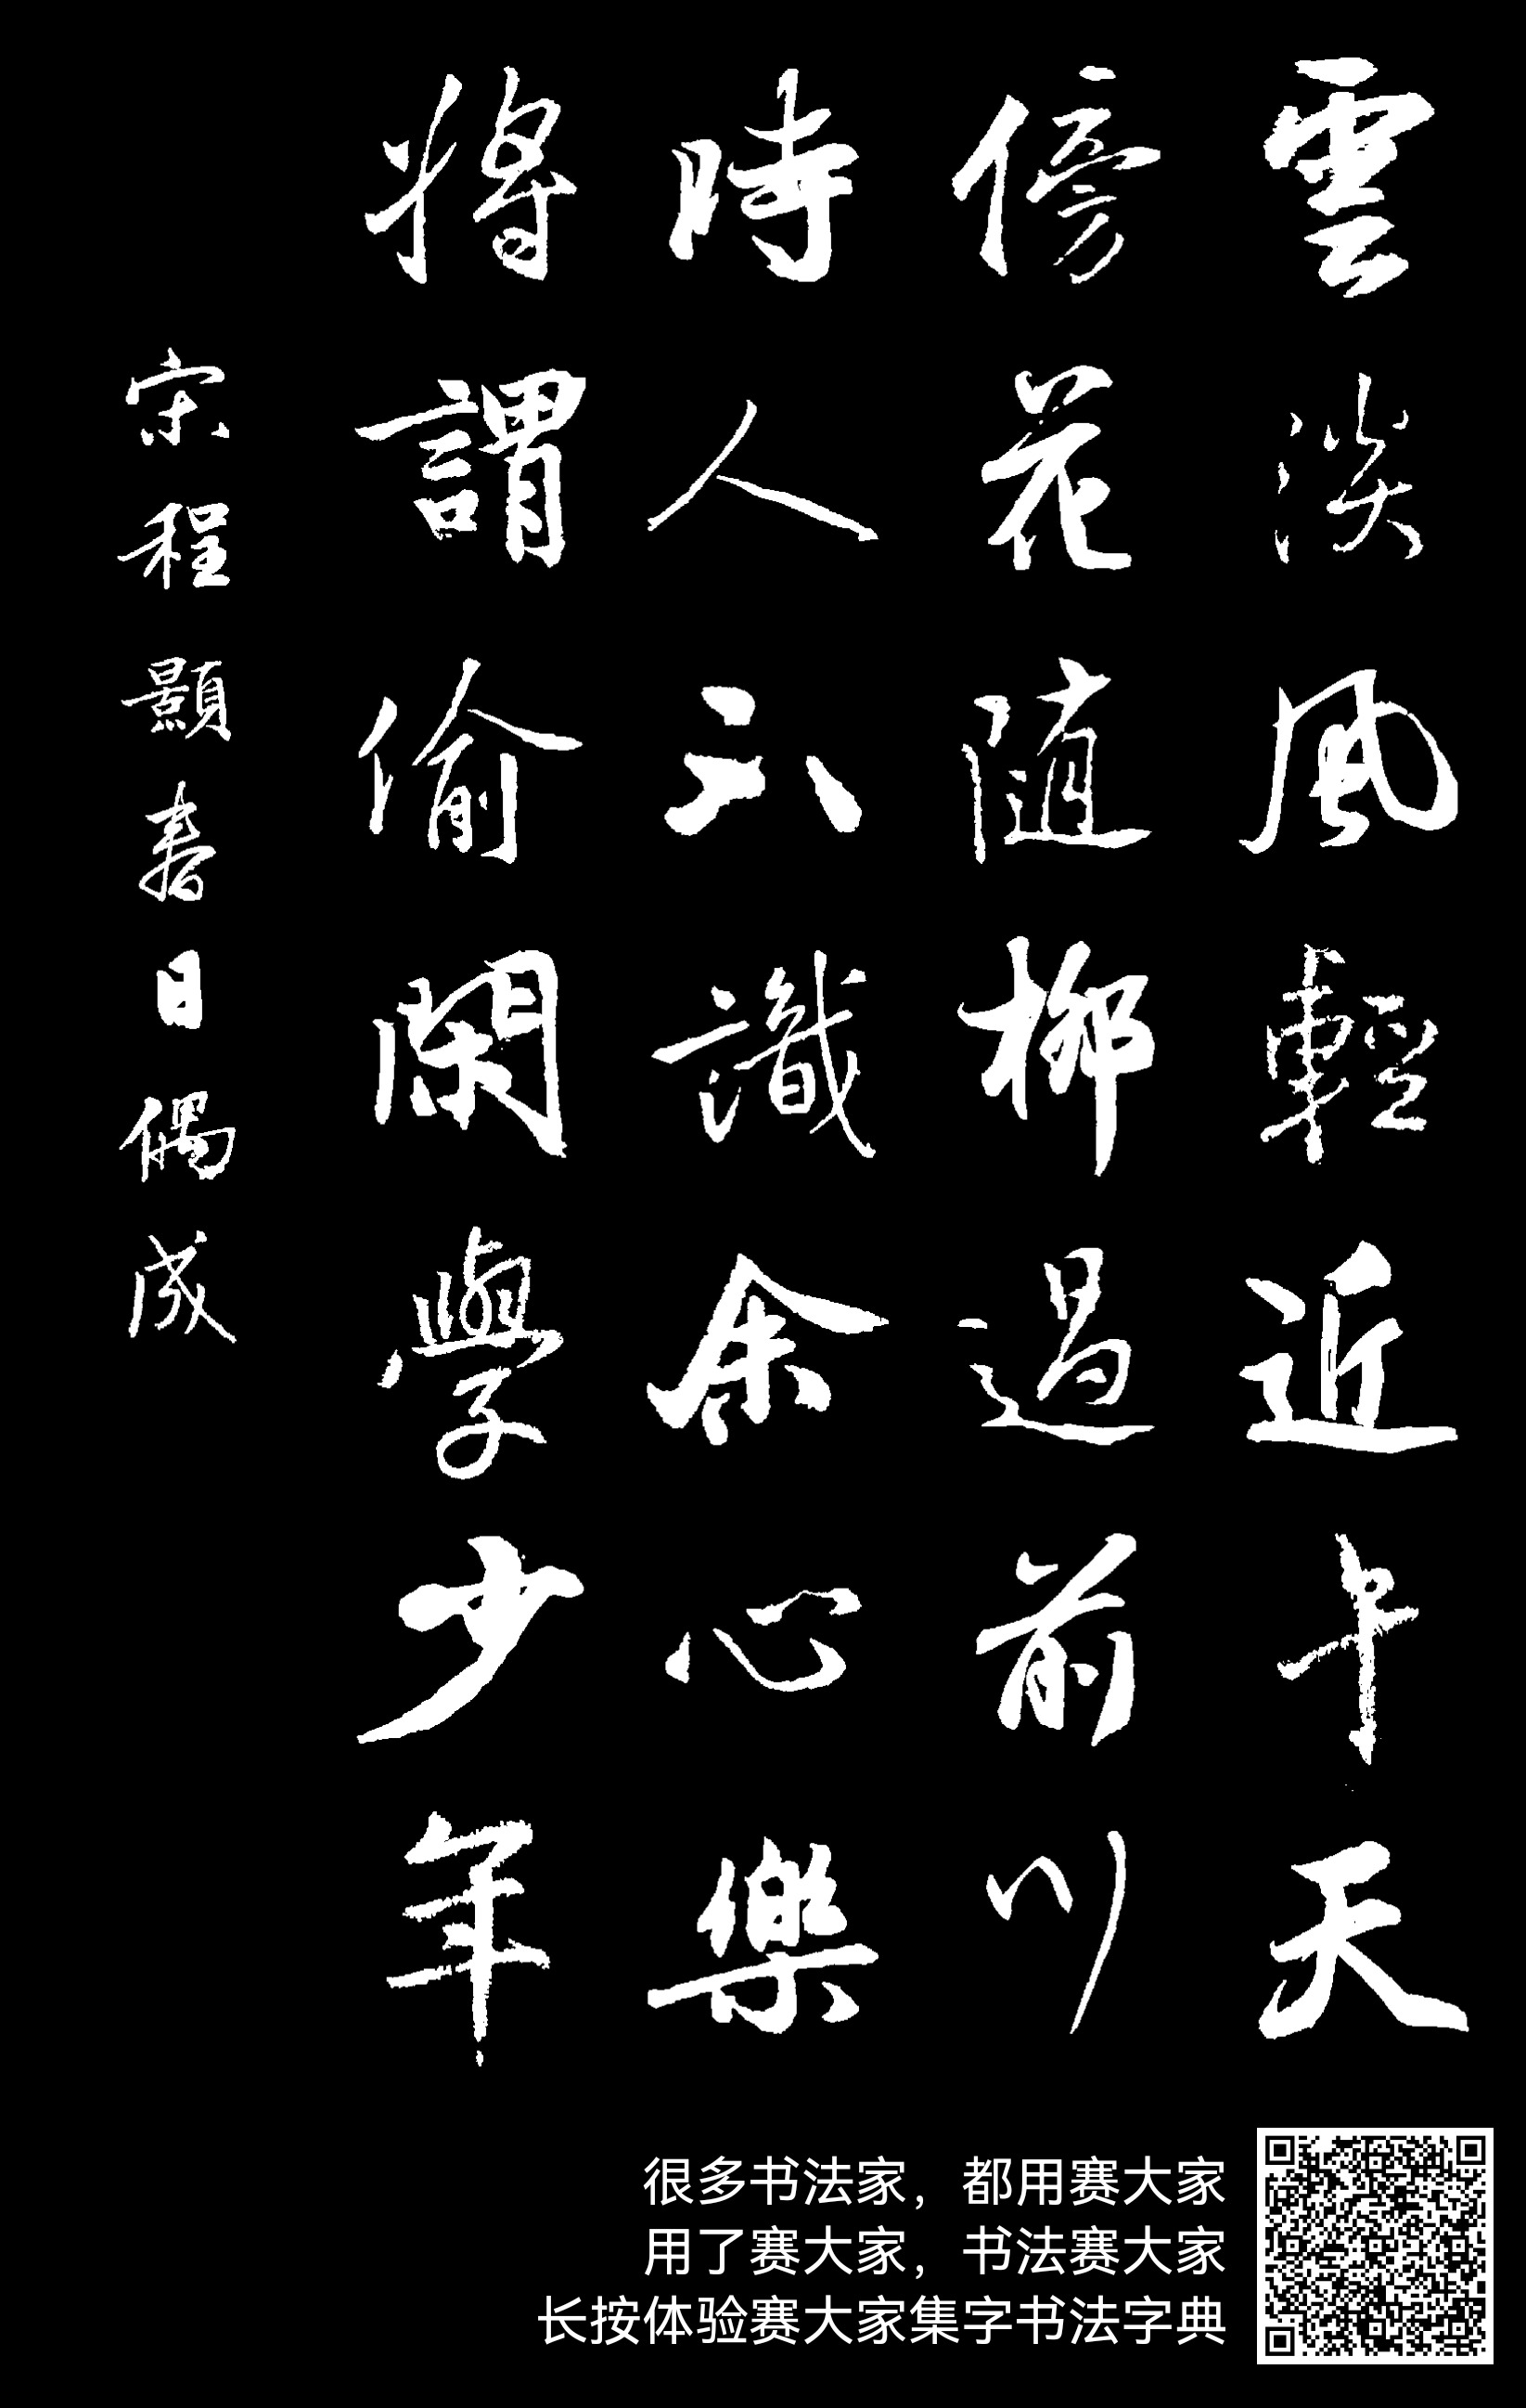 雲淡風輕近午天
傍花随柳過前川
時人不識余心樂
將謂偷閑學少年
宋程顥春日偶成
很多书法家，都用赛大家
用了赛大家，书法赛大家
长按体验赛大家集字书法字典